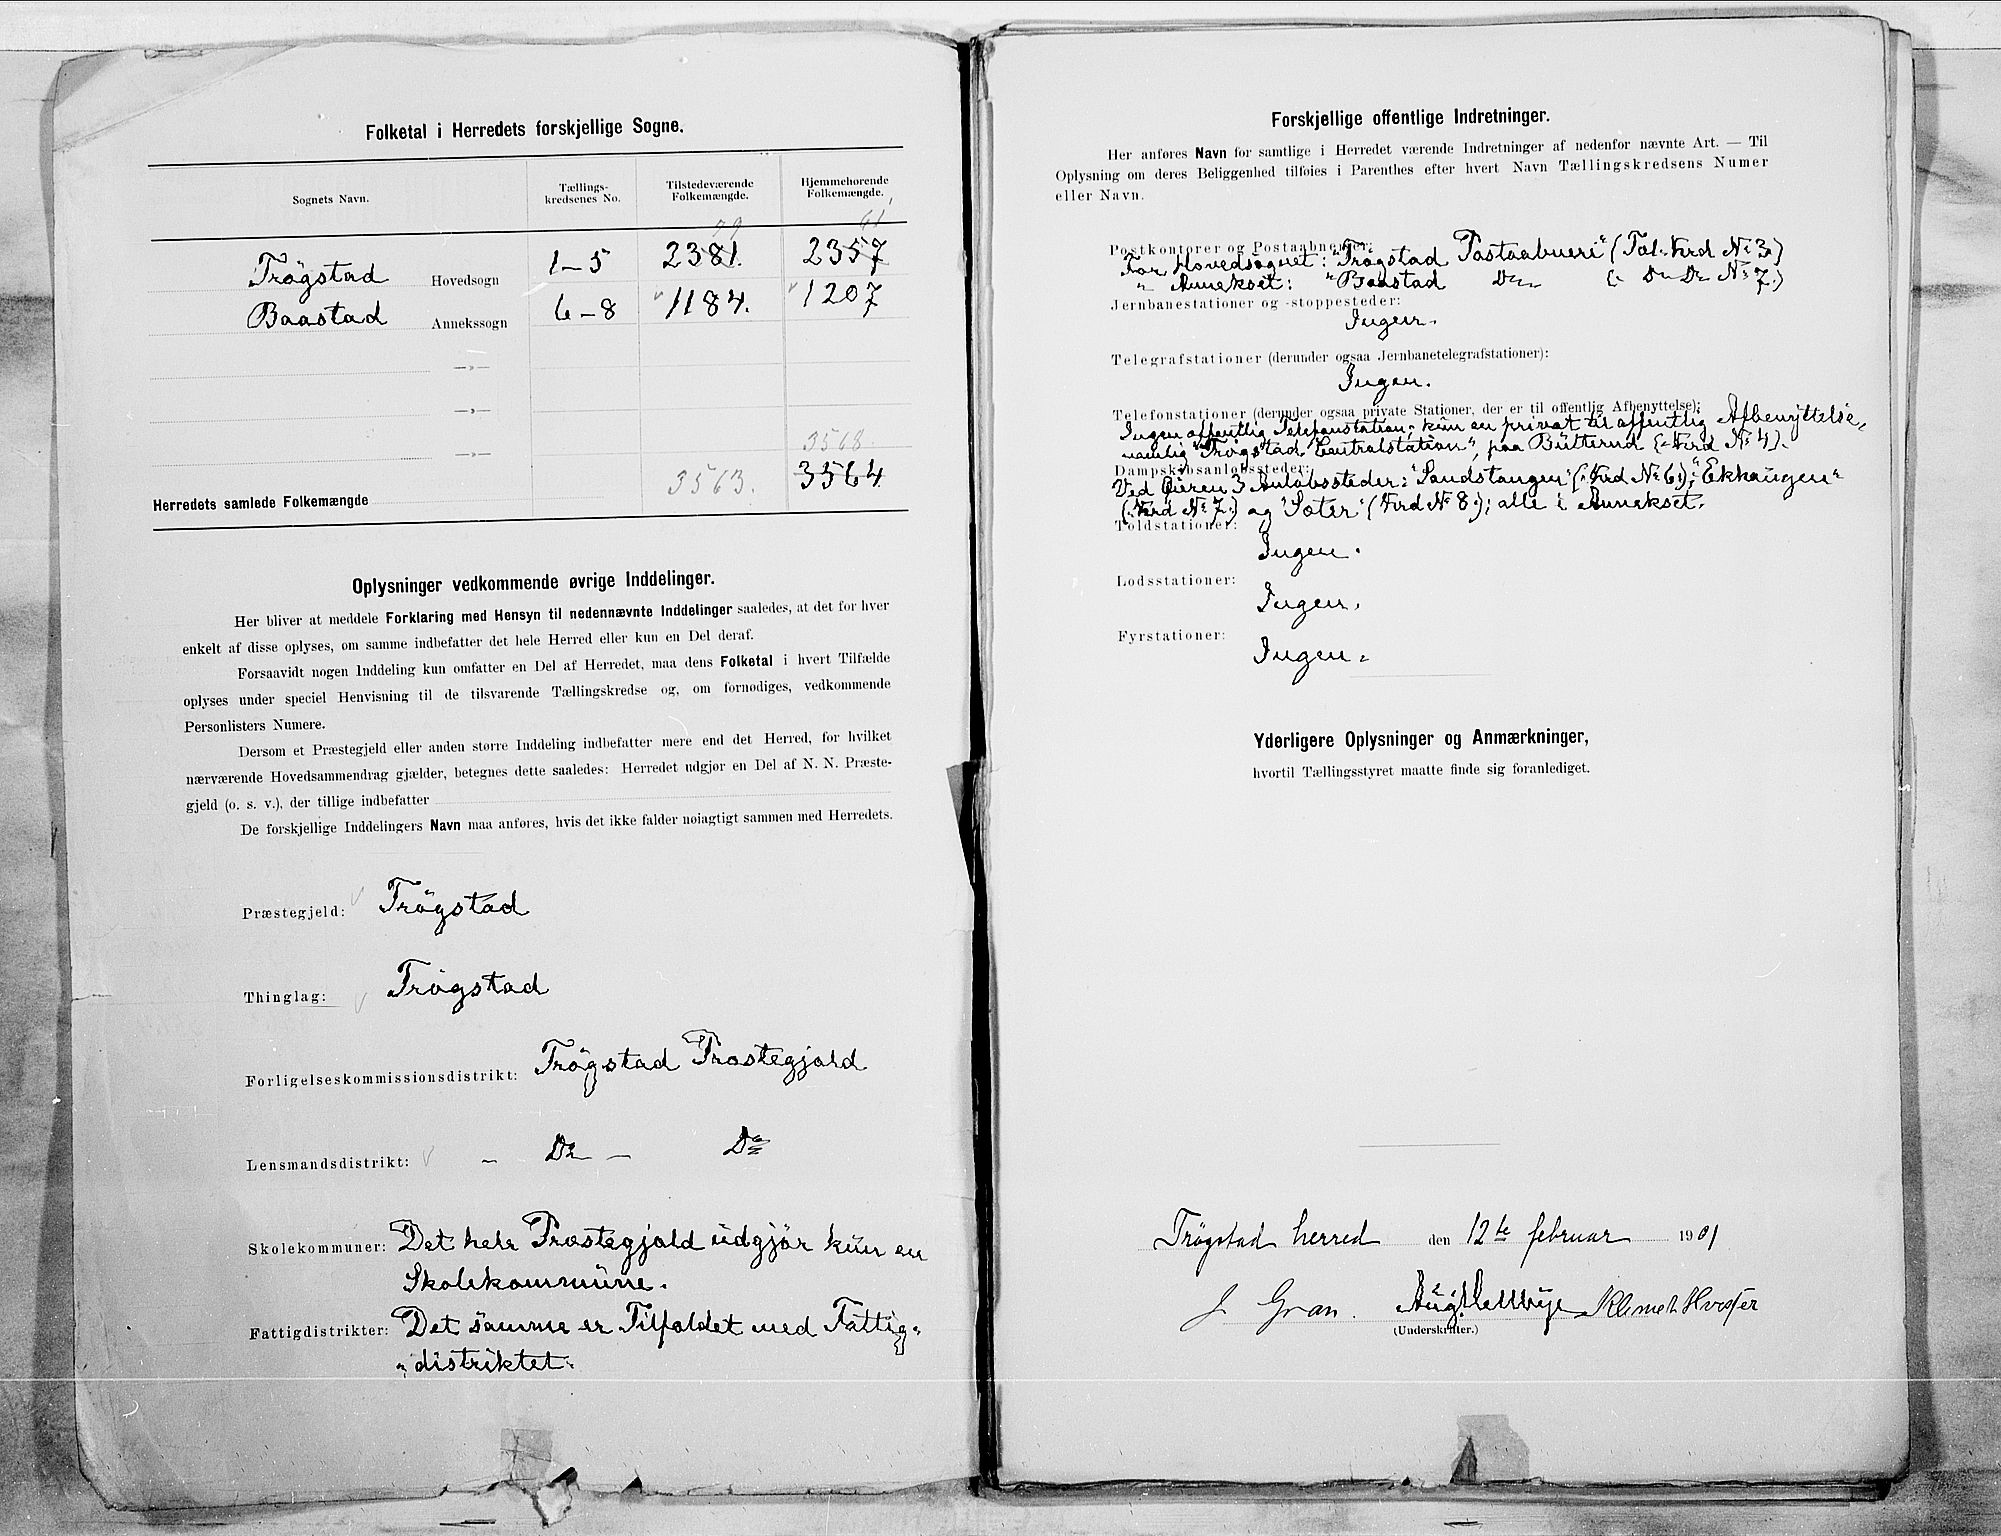 Folketal i Herredets forskjellige Sogne.
Sognets Navn. Tællings-kredsenes No. Tilstedeværende Folkemængde. Hjemmehørende Folkemængde.
79 61
Trøgstad Hovedsogn 1-5 2381. 2357
Baastad Annekssogn 6-8 1184. 1207
—»—
—»—
3568.
—»—
Herredets samlede Folkemængde 3563. 3564
Oplysninger vedkommende øvrige Inddelinger.
Her bliver at meddele Forklaring med Hensyn til nedennævnte Inddelinger saaledes, at det for hver
enkelt af disse oplyses, om samme indbefatter det hele Herred eller kun en Del deraf.
Forsaavidt nogen Inddeling kun omfatter en Del af Herredet, maa dens Folketal i hvert Tilfælde
oplyses under speciel Henvisning til de tilsvarende Tællingskredse og, om fornødiges, vedkommende
Personlisters Numere.
Dersom et Præstegjeld eller anden større Inddeling indbefatter mere end det Herred, for hvilket
nærværende Hovedsammendrag gjælder, betegnes dette saaledes: Herredet udgjør en Del af N. N. Præste-
gjeld (o. s. v.), der tillige indbefatter
De forskjellige Inddelingers Navn maa anføres, hvis det ikke falder nøiagtigt sammen med Herredets.
Præstegjeld: Trøgstad
Thinglag: Trøgstad
Forligelseskommissionsdistrikt: Trøgstad Præstegjæld
Lensmandsdistrikt: - Do - Do
Skolekommuner: Det hele Præstegjæld udgjør kun en
Skolekommune.
Fattigdistrikter: Det samme er Tilfældet med Fattig-
distriktet.
Forskjellige offentlige Indretninger.
Her anføres Navn for samtlige i Herredet værende Indretninger af nedenfor nævnte Art. — Til
Oplysning om deres Beliggenhed tilføies i Parenthes efter hvert Navn Tællingskredsens Numer
eller Navn.
Postkontorer og Postaabnerier:
For Hovedsognet: "Trøgstad Postaabneri" (Tæl. Krd No 3)
" Annekset: "Baastad Do" (- Do Do No 7.)
Jernbanestationer og -stoppesteder:
Ingen.
Telegrafstationer (derunder ogsaa Jernbanetelegrafstationer):
Ingen.
Telefonstationer (derunder ogsaa private Stationer, der er til offentlig Afbenyttelse):
Ingen offentlig Telefonstation; kun en privat til offentlig Afbenyttelse,
nemlig "Trøgstad Centralstation", paa Butterud (-Krd No 4).
Dampskibsanløbssteder:
Ved Øieren 3 Anløbssteder: "Sandstangen" (-Krd No 6); "Ekhaugen"
(-Krd No 7.) og "Sæter" (Krd No 8.); alle i Annekset.
Toldstationer:
Ingen.
Lodsstationer:
Ingen.
Fyrstationer:
Ingen.
Yderligere Oplysninger og Anmærkninger,
hvortil Tællingsstyret maatte finde sig foranlediget.
Trøgstad herred den 12te februar 1901
J. Gran. Aug. Klemet
(Underskrifter.)